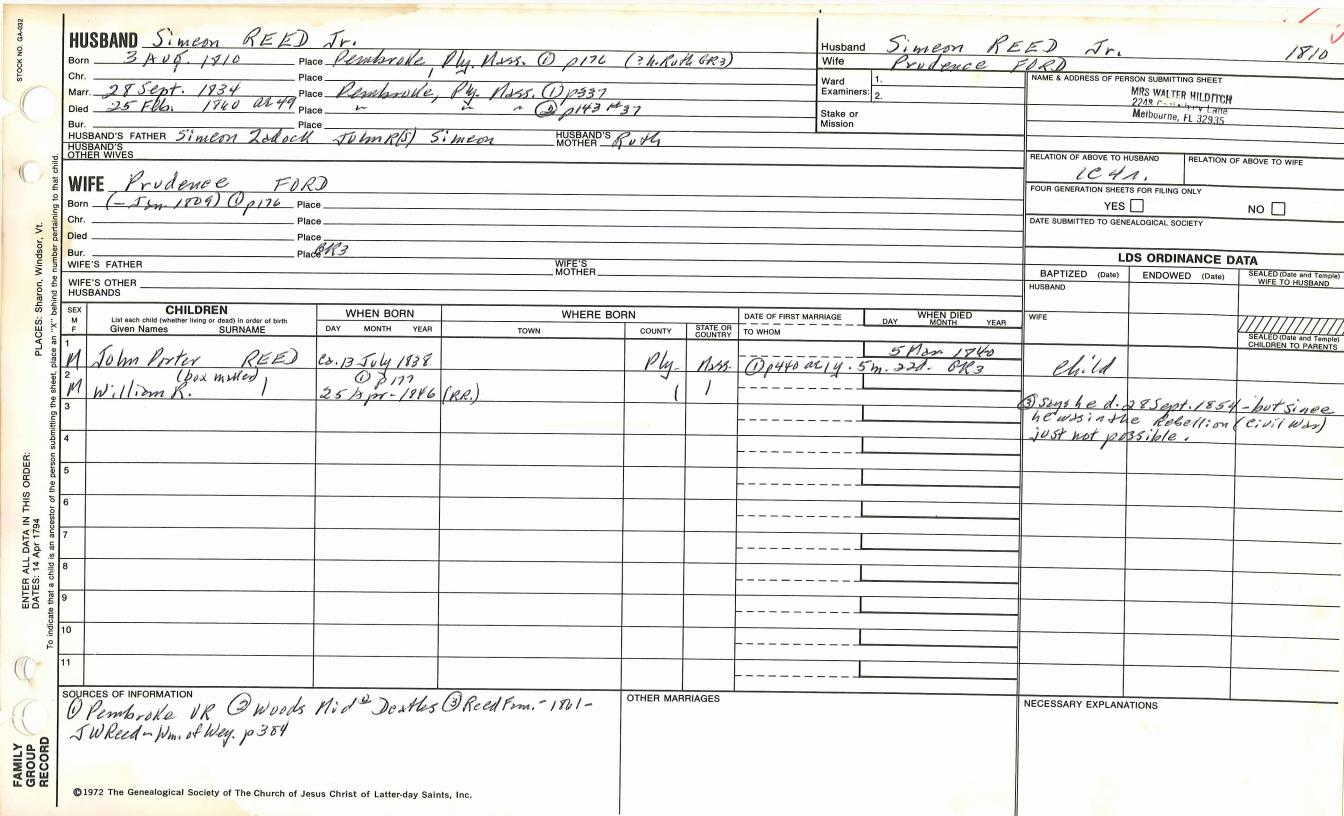 STOCK NO. GA-032
HUSBAND Simeon REED Jr.
Born 3 Aug. 1810 Place Pembroke, Ply. Mass. ① p176 (? h. Ruth GR3)
Chr. Place
Marr. 28 Sept. 1834 Place Pembroke, Ply. Mass. ① p337
Died 25 Feb. 1860 ae 49 Place " " " ② p143 #37
Bur. Place
HUSBAND'S FATHER Simeon Zadock John R(S) Simeon HUSBAND'S MOTHER Ruth
HUSBAND'S OTHER WIVES
WIFE Prudence FORD
Born (- Jan 1809) ① p176 Place
Chr. Place
Died Place
Bur. Place GR3
WIFE'S FATHER WIFE'S MOTHER
WIFE'S OTHER HUSBANDS
Husband Simeon REED Jr. 1810
Wife Prudence FORD
Ward Examiners: 1.
2.
Stake or Mission
NAME & ADDRESS OF PERSON SUBMITTING SHEET
MRS WALTER HILDITCH
2248 Lane
Melbourne, FL 32935
RELATION OF ABOVE TO HUSBAND RELATION OF ABOVE TO WIFE
1C4r.
FOUR GENERATION SHEETS FOR FILING ONLY
YES NO
DATE SUBMITTED TO GENEALOGICAL SOCIETY
LDS ORDINANCE DATA
BAPTIZED (Date) ENDOWED (Date) SEALED (Date and Temple) WIFE TO HUSBAND
HUSBAND
WIFE
SEALED (Date and Temple) CHILDREN TO PARENTS
SEX M F
CHILDREN
List each child (whether living or dead) in order of birth
Given Names SURNAME
WHEN BORN
DAY MONTH YEAR
WHERE BORN
TOWN COUNTY STATE OR COUNTRY
DATE OF FIRST MARRIAGE
TO WHOM
WHEN DIED
DAY MONTH YEAR
1 M John Porter REED ca. 13 July 1838 Ply. Mass. 5 Mar 1840
① p177 ① p440 ae 1y. 5m. 22d. GR3 Child
2 M William R. (box maker) 25 Apr - 1846 (RR.)
③ says he d. 28 Sept. 1854 - but since
he was in the Rebellion (Civil War)
just not possible.
3
4
5
6
7
8
9
10
11
SOURCES OF INFORMATION
① Pembroke VR ② Woods Deaths ③ Reed Fam. - 1861 -
JW Reed - Wm. of Wey. p384
OTHER MARRIAGES
NECESSARY EXPLANATIONS
©1972 The Genealogical Society of The Church of Jesus Christ of Latter-day Saints, Inc.
FAMILY GROUP RECORD
ENTER ALL DATA IN THIS ORDER:
DATES: 14 Apr 1794
PLACES: Sharon, Windsor, Vt.
To indicate that a child is an ancestor of the person submitting the sheet, place an "X" behind the number pertaining to that child.